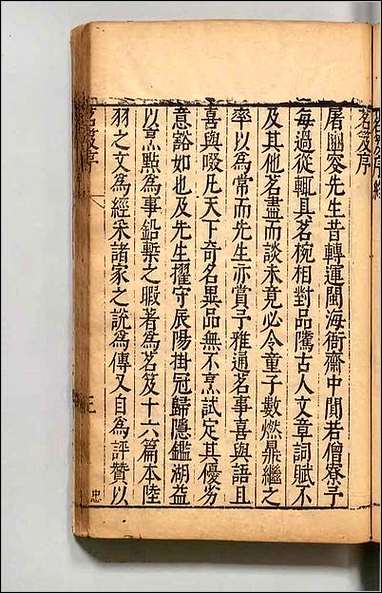 茗芨序
屠豳叜先生昔轉運閩海衙齋中閴若僧寮予
每過從輒具茗椀相對品隲古人文章詞賦不
及其他茗盡而談未竟必令童子數燃鼎繼之
率以為常而先生亦賞予雅通茗事喜與語且
喜與啜凡天下奇名異品無不烹試定其優劣
意豁如也及先生擢守辰陽挂冠歸隱鑑湖益
以烹點為事鉛槧之暇著為茗芨十六篇本陸
羽之文為經采諸家之說為傳又自為評贊以
茗芨序
忠